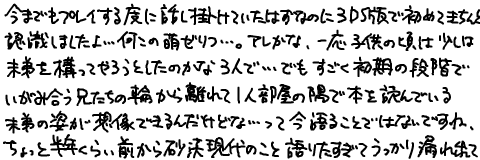 今までもプレイする度に話し掛けていたはずなのに3DS版で初めてまちんと
認識しましたよ…何この萌ぜりつ…。アレかな、一応子供の頃は少しは
末弟を構ってやろうとしたのかな3人で…でもすごく初期の段階で
いがみ合う兄たちの輪から離れて1人部屋の隅で本を読んでいる
末弟の姿が想像できるんだけどな…って今語ることではないですね、
ちょっと半年くらい前から砂漠現代のこと語りたすぎてうっかり漏れ出て